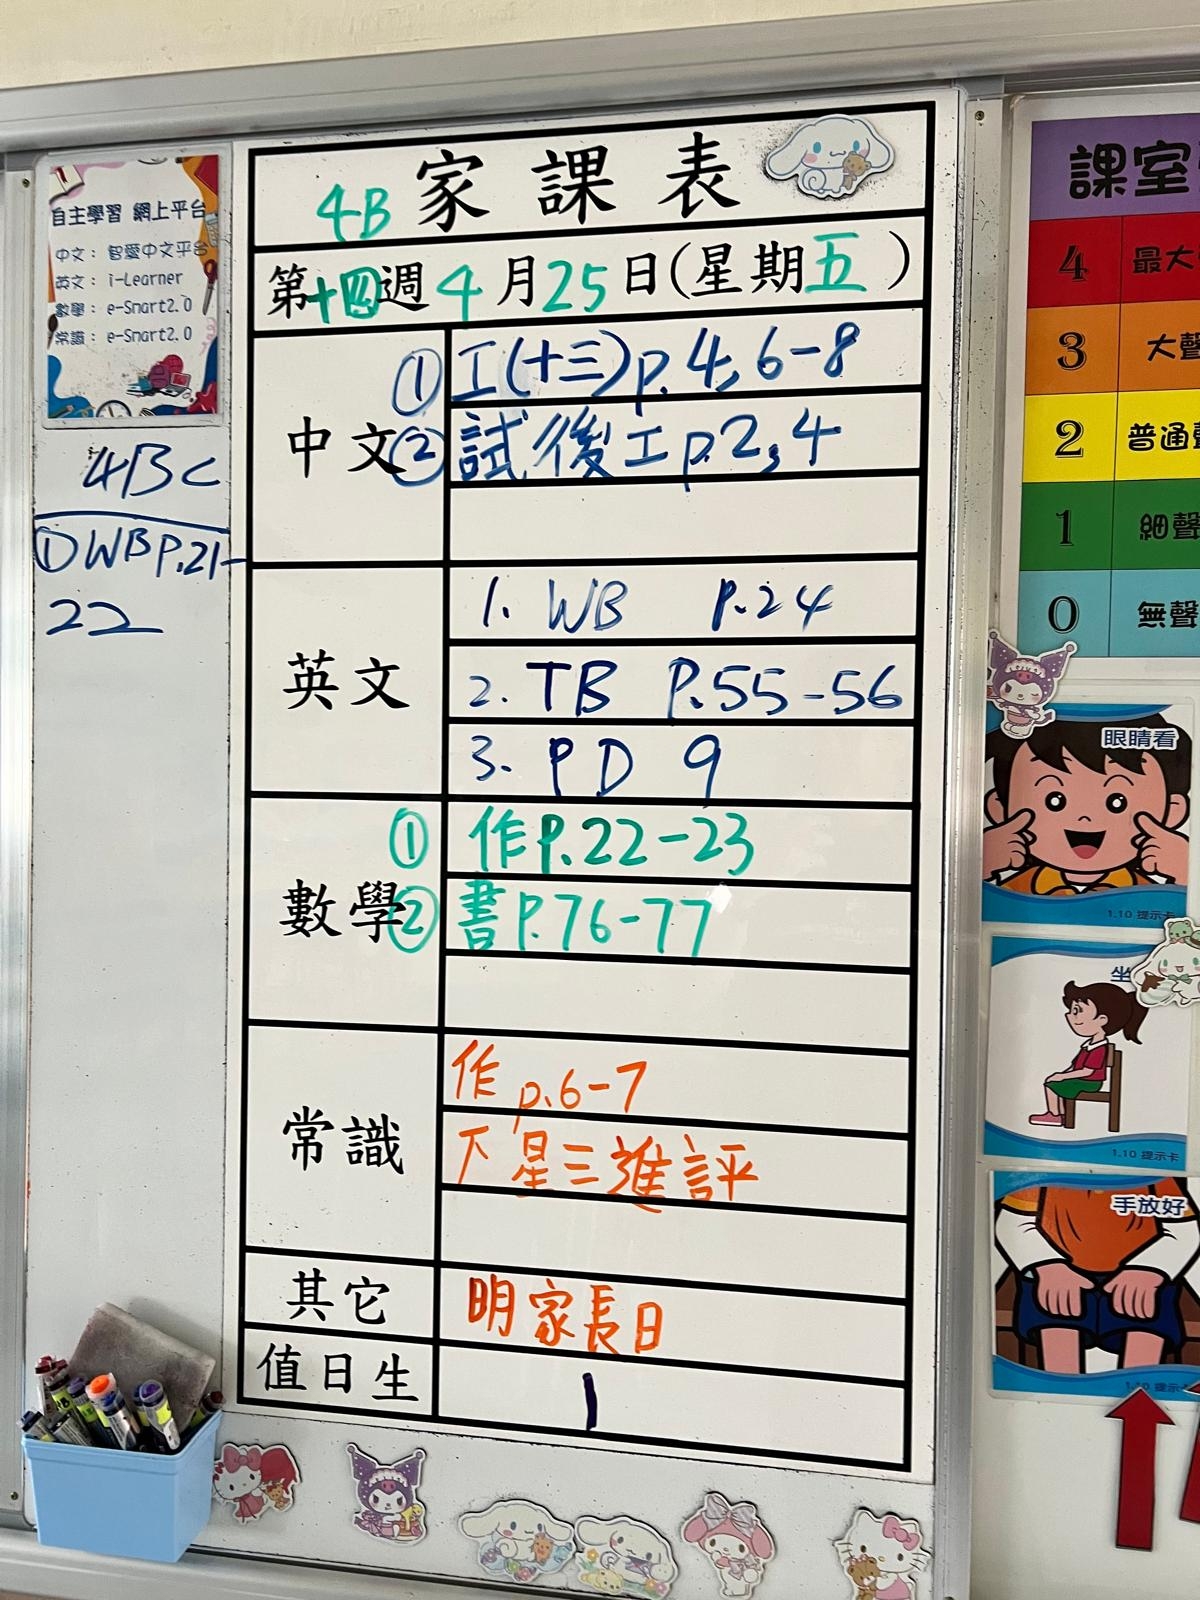 自主學習 網上平台
中文： 智愛中文平台
英文： i-Learner
數學： e-Smart2.0
常識： e-Smart2.0
4BC
① WB P.21-
22
4B 家課表
第十四週 4月25日(星期五)
中文
① 工(十三)p.4,6-8
② 試後工p.2,4
英文
1. WB P.24
2. TB P.55-56
3. PD 9
數學
① 作P.22-23
② 書P.76-77
常識
作 p.6-7
下星三進評
其它
明家長日
值日生
1
課室
4 最大
3 大聲
2 普通聲
1 細聲
0 無聲
眼睛看
1.10 提示卡
坐
1.10 提示卡
手放好
1.10 提示